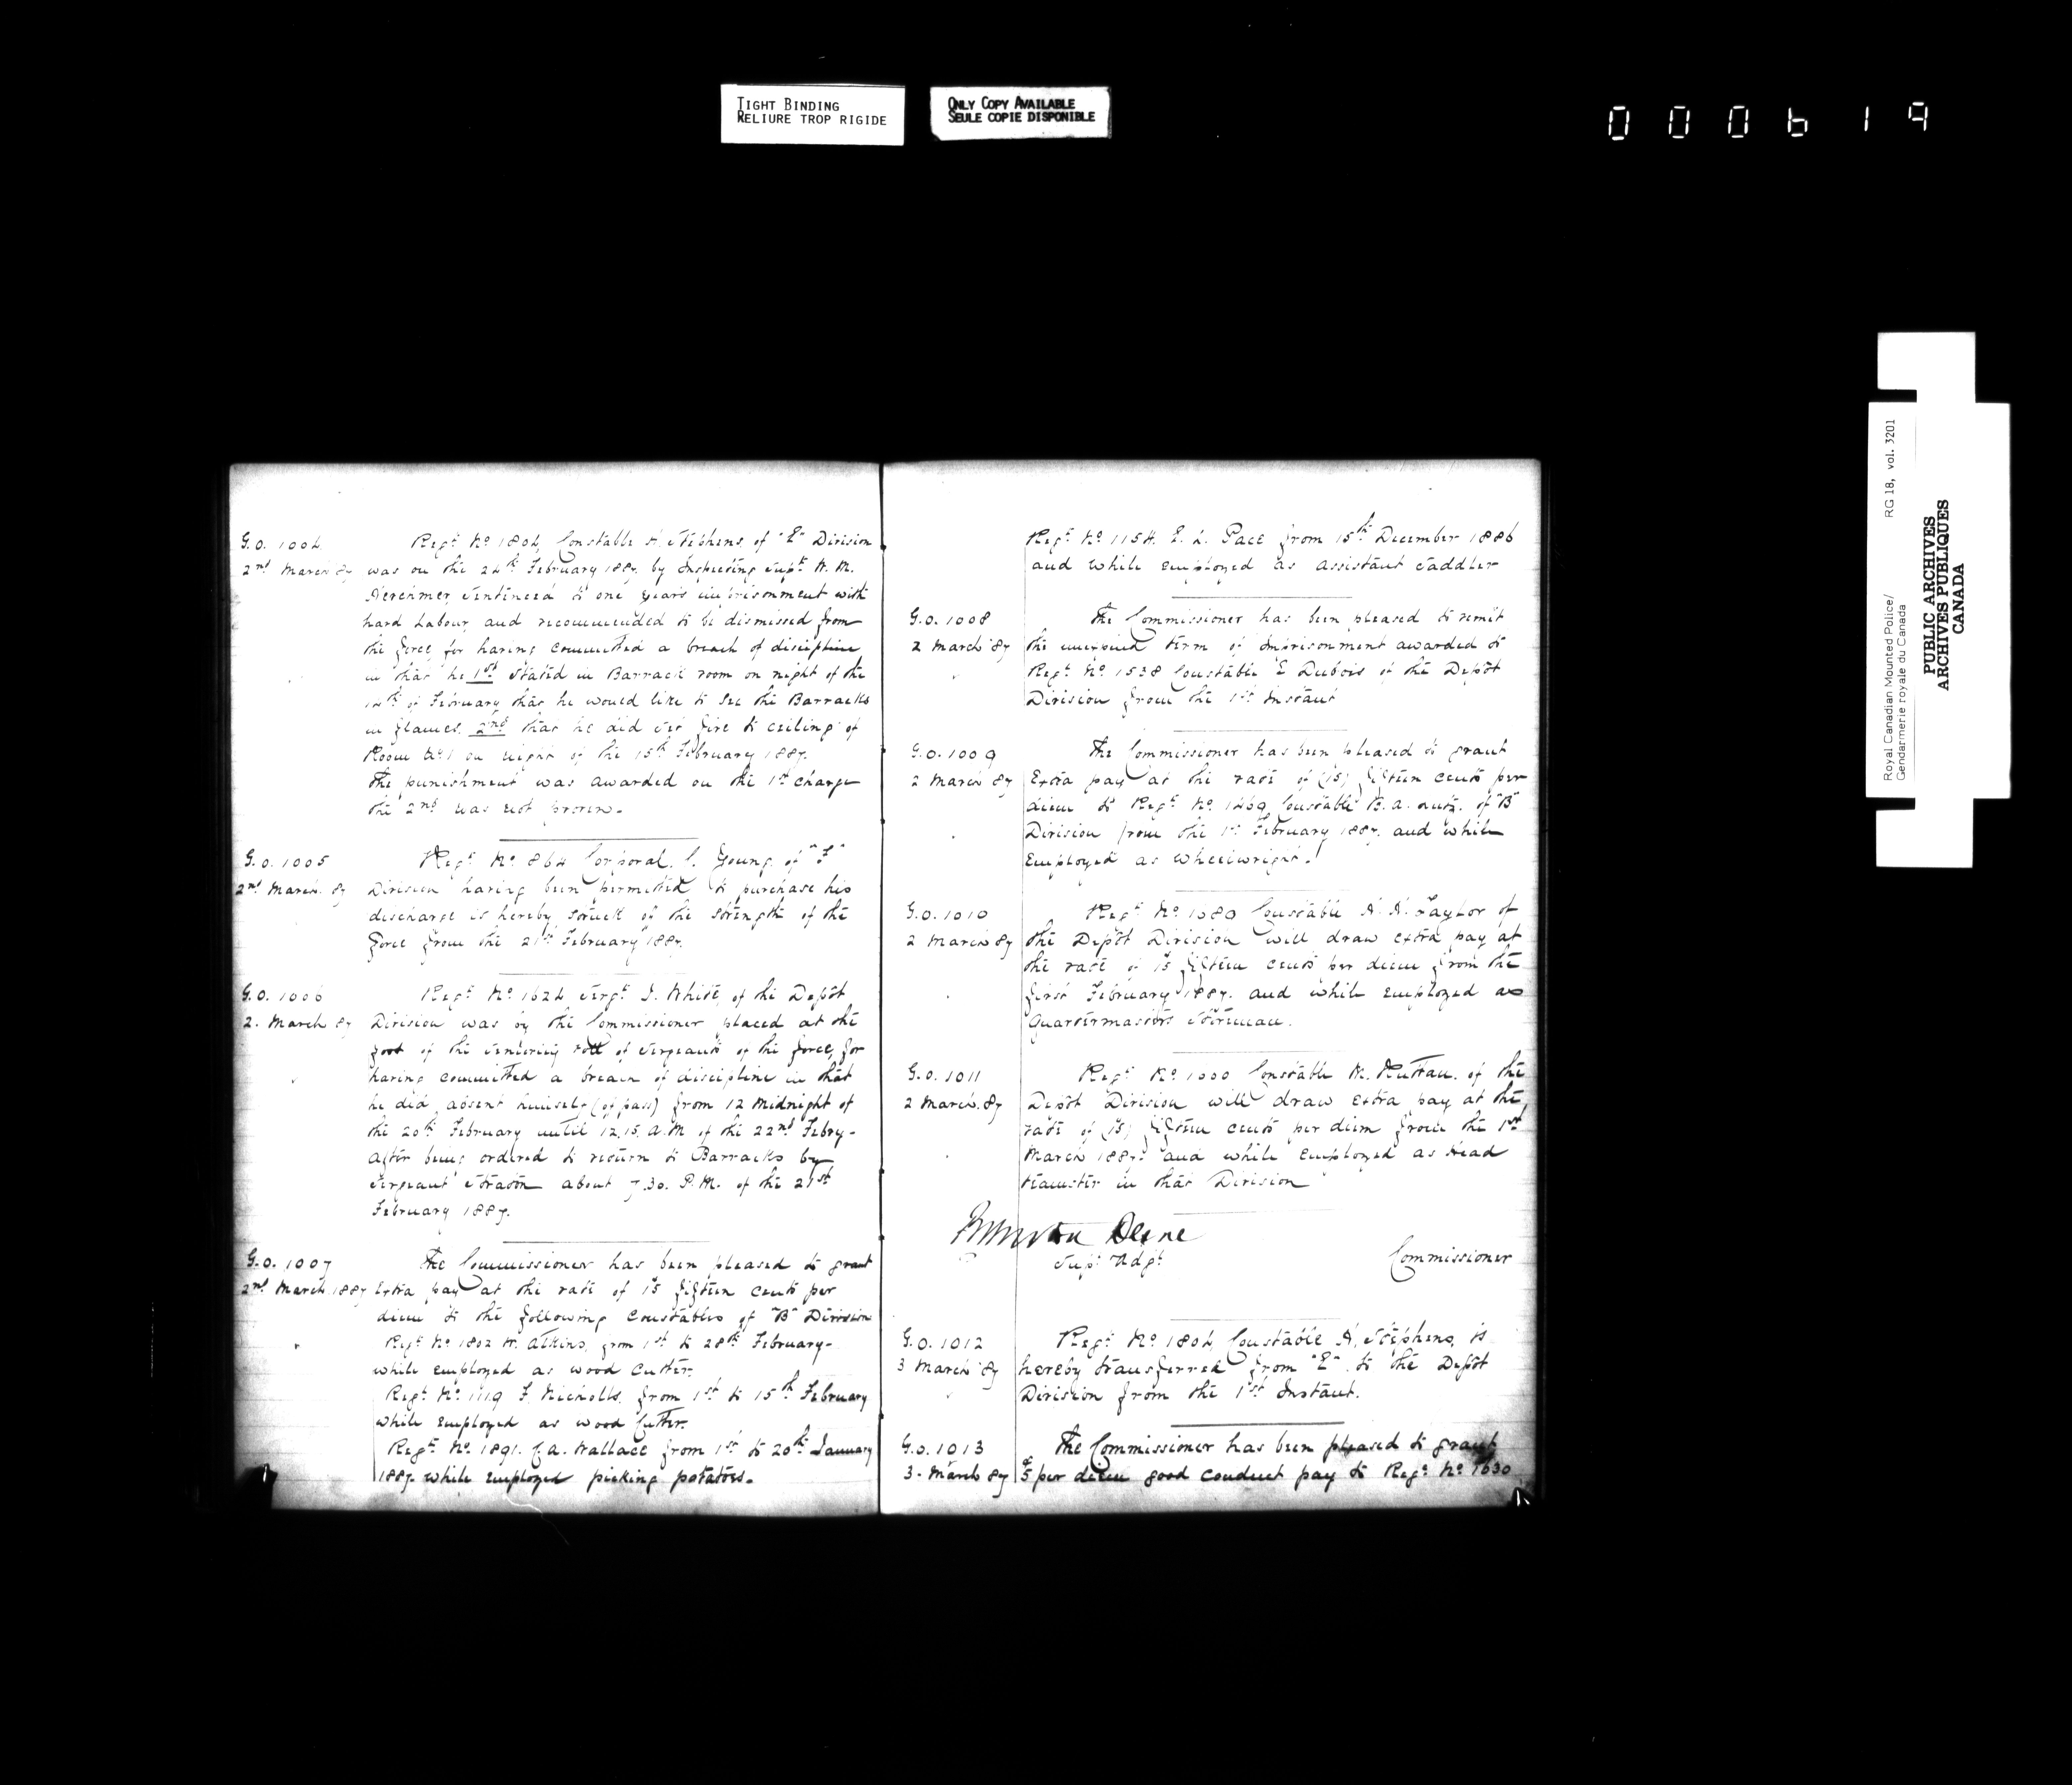 TIGHT BINDING
RELIURE TROP RIGIDE
ONLY COPY AVAILABLE
SEULE COPIE DISPONIBLE
000619
Royal Canadian Mounted Police/
Gendarmerie royale du Canada
RG 18, vol. 3201
PUBLIC ARCHIVES
ARCHIVES PUBLIQUES
CANADA
G.O. 1004
2nd March 87
Regt No 1804, Constable A. Stephens, of "E" Division
was on the 24th February 1887. by Inspecting Supt W. M.
Herchmer, sentenced to one years imprisonment with
hard Labour, and recommended to be dismissed from
the force, for having committed a breach of discipline
in that he 1st Stated in Barrack room on night of the
14th of February that he would like to see the Barracks
in flames. 2nd that he did set fire to ceiling of
Room No 1 on night of the 15th February 1887.
The punishment was awarded on the 1st charge
the 2nd was not proven.
G.O. 1005
2nd March. 87
Regt No 864 Corporal. C. Young. of "F"
Division having been permitted to purchase his
discharge is hereby struck of the strength of the
Force from the 21st February 1887.
G.O. 1006
2. March 87
Regt No 1624 Sergt J. White, of the Depôt
Division was by the Commissioner placed at the
foot of the seniority roll of Sergeants of the force, for
having committed a breach of discipline in that
he did absent himself (of pass) from 12 Midnight of
the 20th February until 12.15. A.M of the 22nd Febry-
after being ordered to return to Barracks by
Sergeant Stratón about 7.30. P.M. of the 21st
February 1887.
G.O. 1007
2nd March 1887
The Commissioner has been pleased to grant
extra pay at the rate of 15 fifteen cents per
diem to the following constables of "B" Division
Regt No 1802 W. Atkins, from 1st to 28th February-
while employed as wood cutter.
Regt No 1119 F. Nicholls. from 1st to 15th February
while employed as wood Cutter.
Regt No 1891. C.A. Wallace from 1st to 20th January
1887. while employed picking potatoes.
Regt No 1154. E. L. Pace from 15th December 1886
and while employed as assistant Saddler
G.O. 1008
2 March '87
The Commissioner has been pleased to remit
the unexpired term of Imprisonment awarded to
Regt No 1538 Constable E Dubois of the Depôt
Division from the 1st Instant
G.O. 1009
2 March 87
The Commissioner has been pleased to grant
Extra pay at the rate of (15) fifteen cents per
diem to Regt No 1469 Constable B. A. of "B"
Division from the 1st February 1887. and while
employed as Wheelwright.
G.O. 1010
2 March 87
Regt No Constable Taylor of
the Depôt Division will draw extra pay at
the rate of 15 fifteen cents per diem from the
first February 1887. and while employed as
Quartermasters Storeman.
G.O. 1011
2 March. 87
Regt No 1000 Constable M. Ruttan. of the
Depôt Division will draw extra pay at the
rate of (15) fifteen cents per diem from the 1st
March 1887. and while employed as Head
teamster in that Division
Deane
Supt Adjt
Commissioner
G.O. 1012
3 March '87
Regt No 1804, Constable A, Stephens, is
hereby transferred from "E" to the Depôt
Division from the 1st Instant.
G.O. 1013
3. March 87
The Commissioner has been pleased to grant
5 per diem good conduct pay to Regt No 1630